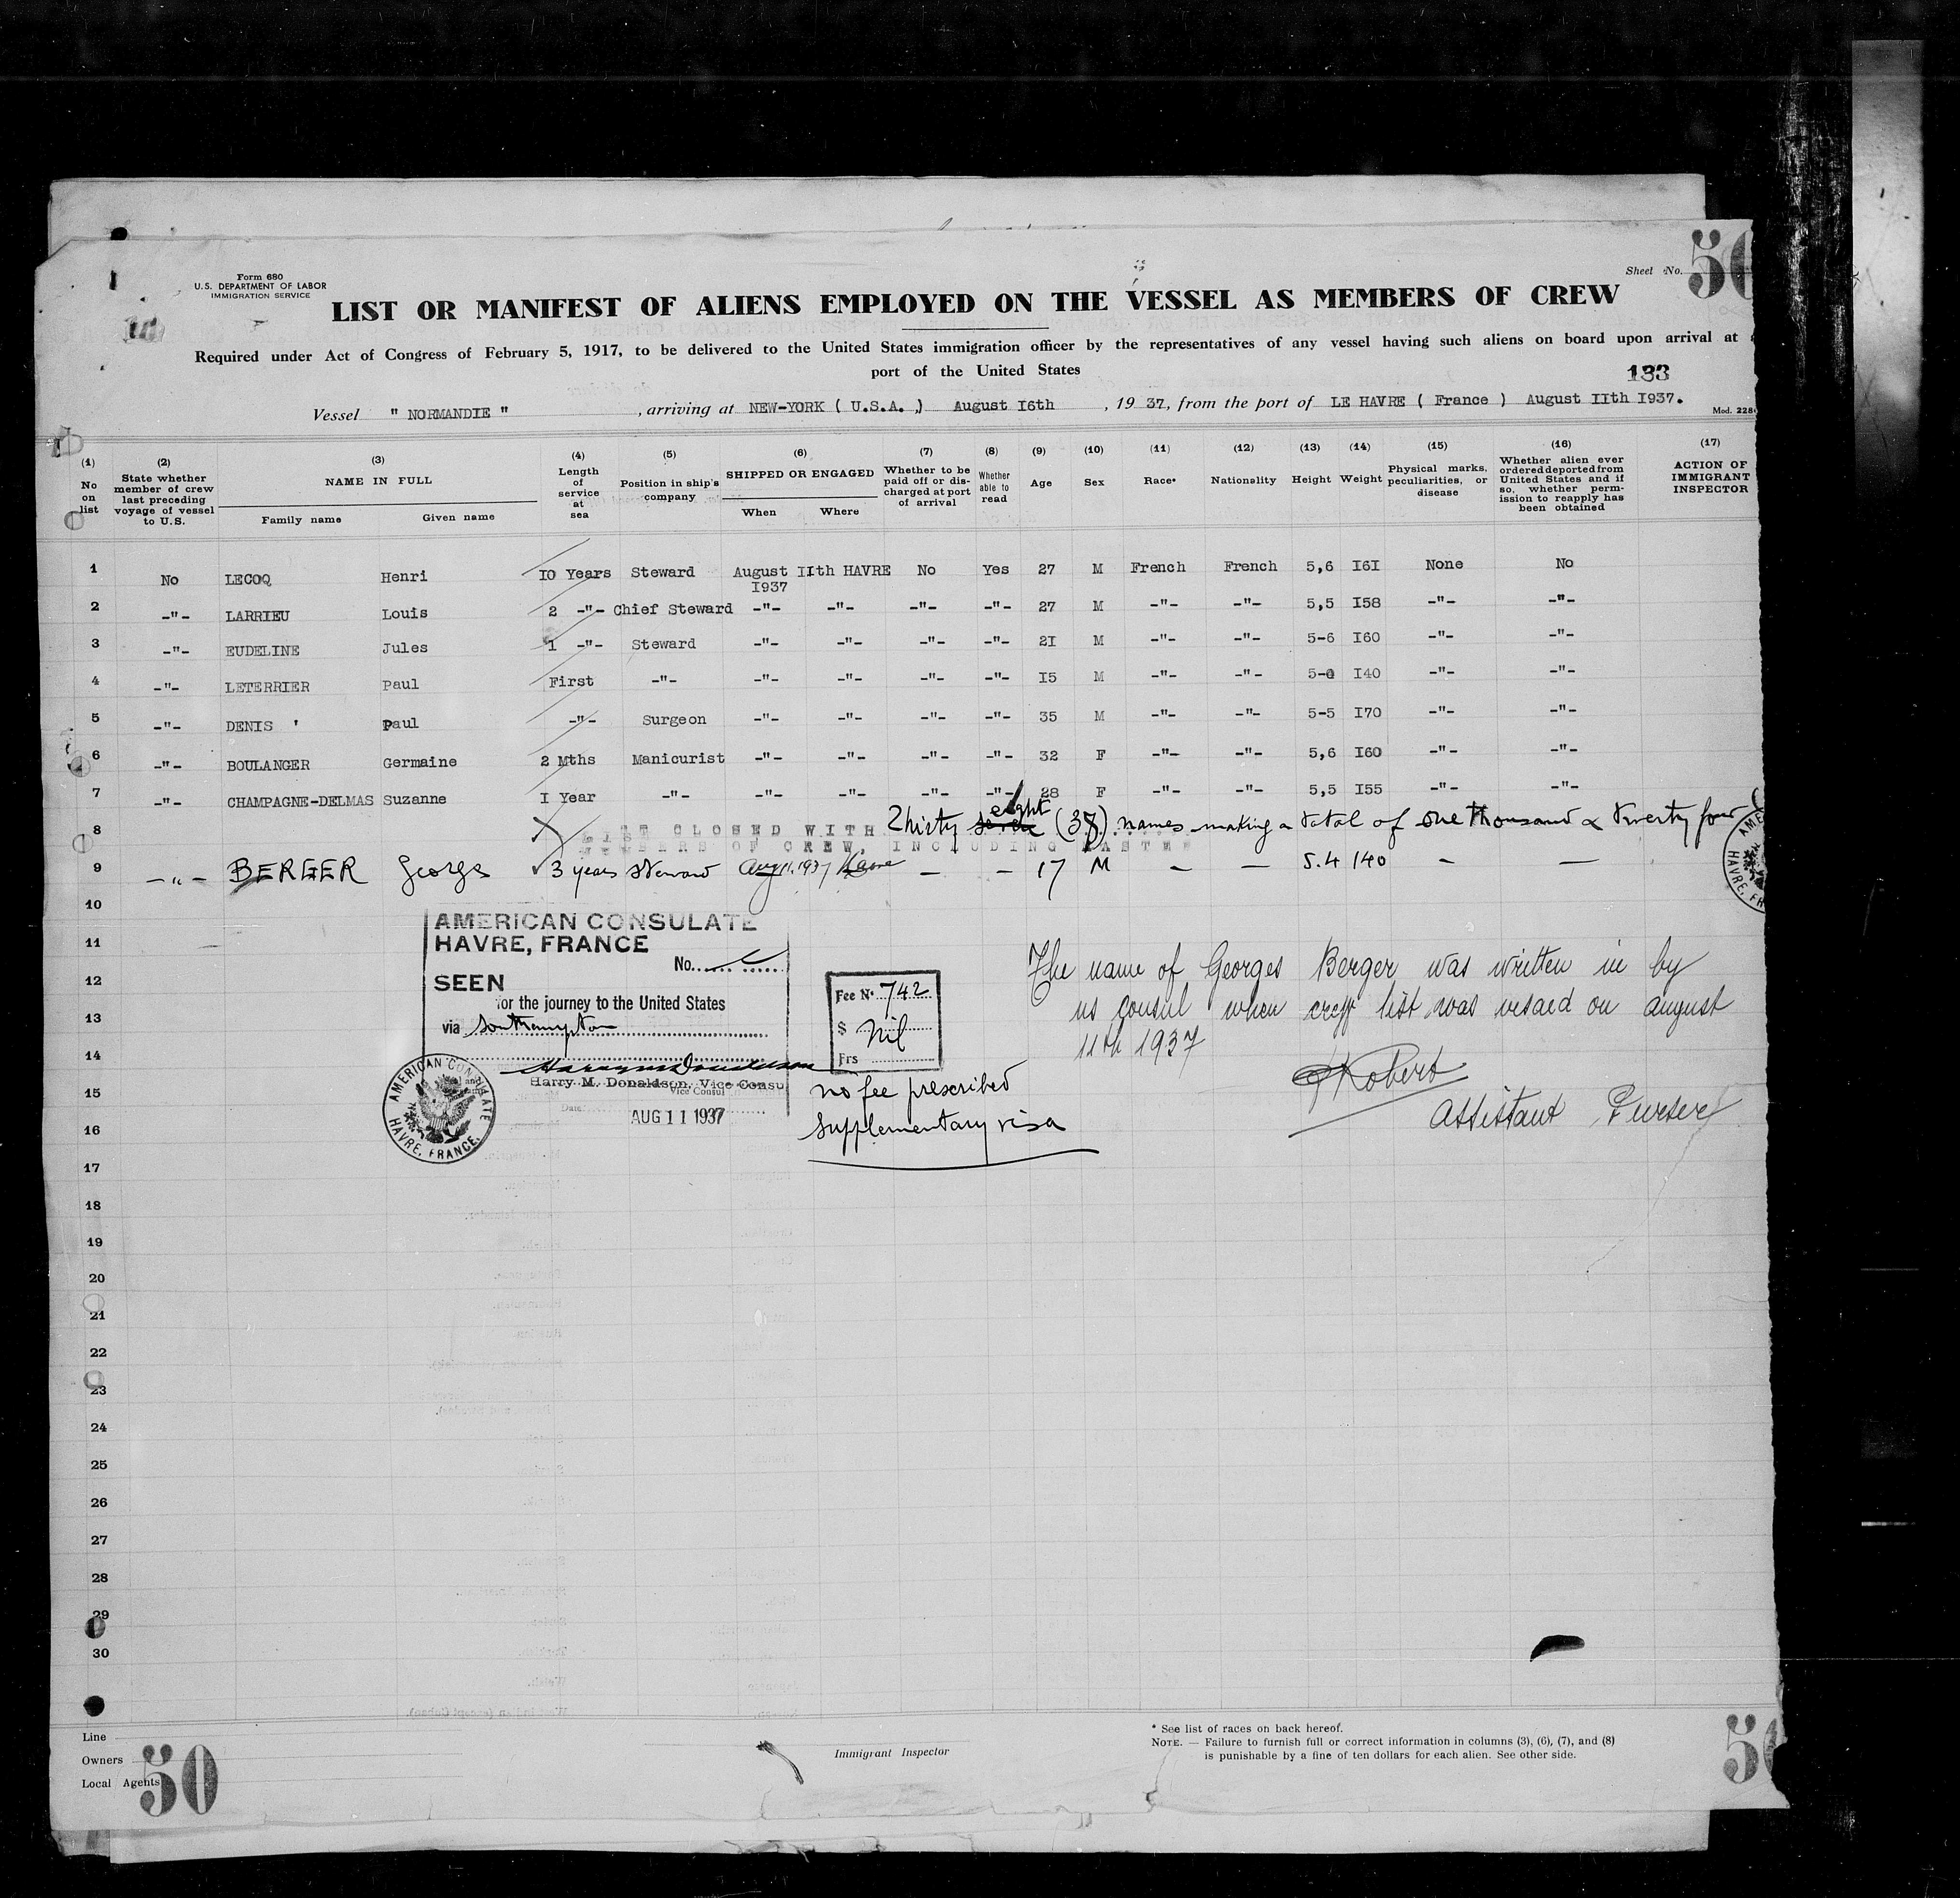 Form 680
U.S. DEPARTMENT OF LABOR
IMMIGRATION SERVICE
Sheet No. 50
LIST OR MANIFEST OF ALIENS EMPLOYED ON THE VESSEL AS MEMBERS OF CREW
Required under Act of Congress of February 5, 1917, to be delivered to the United States immigration officer by the representatives of any vessel having such aliens on board upon arrival at
port of the United States
133
Vessel " NORMANDIE " , arriving at NEW-YORK ( U.S.A. ) August I6th , 19 37, from the port of LE HAVRE ( France ) August IIth I937.
Mod. 228
(1) No on list
(2) State whether member of crew last preceding voyage of vessel to U.S.
(3) NAME IN FULL Family name Given name
(4) Length of service at sea
(5) Position in ship's company
(6) SHIPPED OR ENGAGED When Where
(7) Whether to be paid off or discharged at port of arrival
(8) Whether able to read
(9) Age
(10) Sex
(11) Race*
(12) Nationality
(13) Height
(14) Weight
(15) Physical marks, peculiarities, or disease
(16) Whether alien ever ordered deported from United States and if so, whether permission to reapply has been obtained
(17) ACTION OF IMMIGRANT INSPECTOR
1 No LECOQ Henri IO Years Steward August IIth HAVRE No Yes 27 M French French 5,6 I6I None No
I937
2 -"- LARRIEU Louis 2 -"- Chief Steward -"- -"- -"- -"- 27 M -"- -"- 5,5 I58 -"- -"-
3 -"- EUDELINE Jules 1 -"- Steward -"- -"- -"- -"- 2I M -"- -"- 5-6 I60 -"- -"-
4 -"- LETERRIER Paul First -"- -"- -"- -"- -"- I5 M -"- -"- 5-0 I40 -"- -"-
5 -"- DENIS ' Paul -"- Surgeon -"- -"- -"- -"- 35 M -"- -"- 5-5 I70 -"- -"-
6 -"- BOULANGER Germaine 2 Mths Manicurist -"- -"- -"- -"- 32 F -"- -"- 5,6 I60 -"- -"-
7 -"- CHAMPAGNE-DELMAS Suzanne I Year -"- -"- -"- -"- -"- 28 F -"- -"- 5,5 I55 -"- -"-
eight
8 LIST CLOSED WITH Thirty seven (38) names making a total of one thousand & twenty four
MEMBERS OF CREW, INCLUDING MASTER
9 -"- BERGER Georges 3 years Steward Aug 11. 1937 Havre - - 17 M - - 5.4 140 - -
10
AMERICAN CONSULATE
11 HAVRE, FRANCE
No.
12 SEEN
for the journey to the United States
13 via Southampton
14
Harry M. Donaldson, Vice Consul
Vice Consul
15 Date:
AUG 11 1937
AMERICAN CONSULATE HAVRE, FRANCE.
Fee No. 742
$ Nil
Frs
no fee prescribed
16 Supplementary visa
The name of Georges Berger was written in by
us consul when crew list was visaed on august
11th 1937
Robert
Assistant Purser
17
18
19
20
21
22
23
24
25
26
27
28
29
30
Line
Owners
Local Agents
50
Immigrant Inspector
* See list of races on back hereof.
NOTE. — Failure to furnish full or correct information in columns (3), (6), (7), and (8)
is punishable by a fine of ten dollars for each alien. See other side.
50